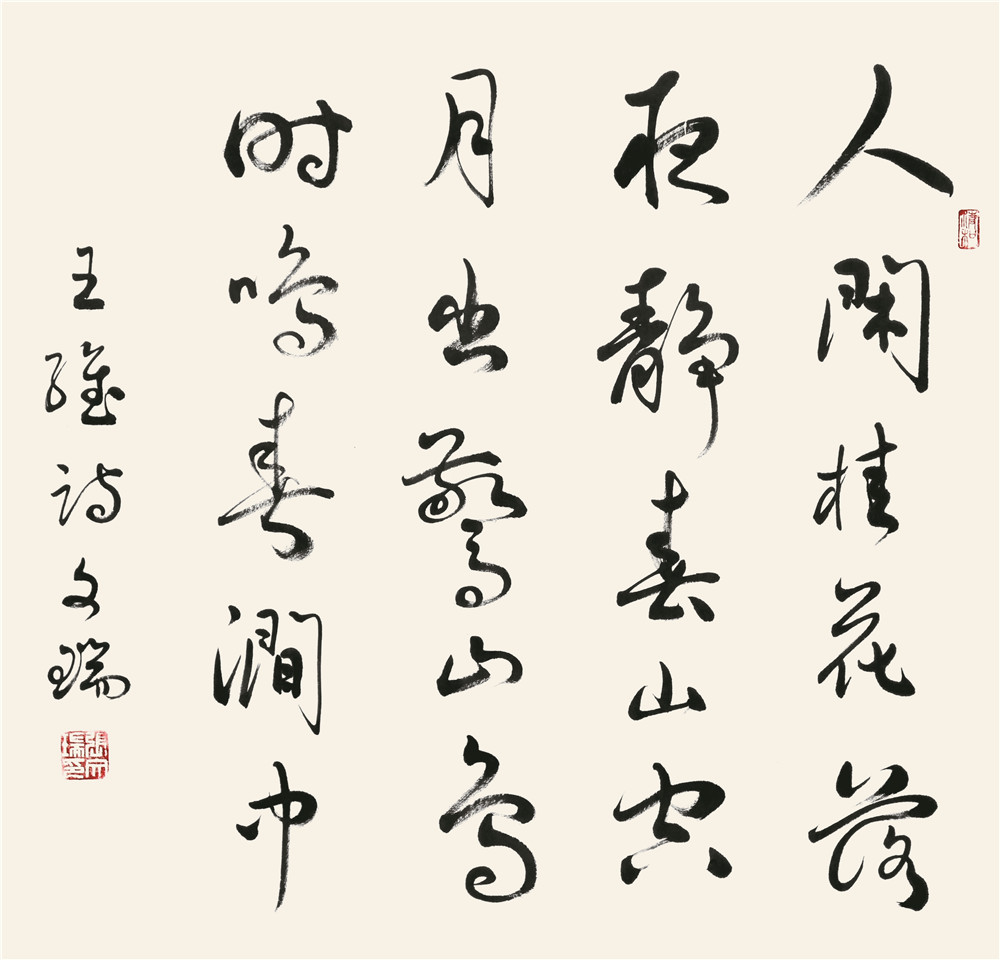 人闲桂花落
夜静春山空
月出惊山鸟
时鸣春涧中
王维诗文瑞